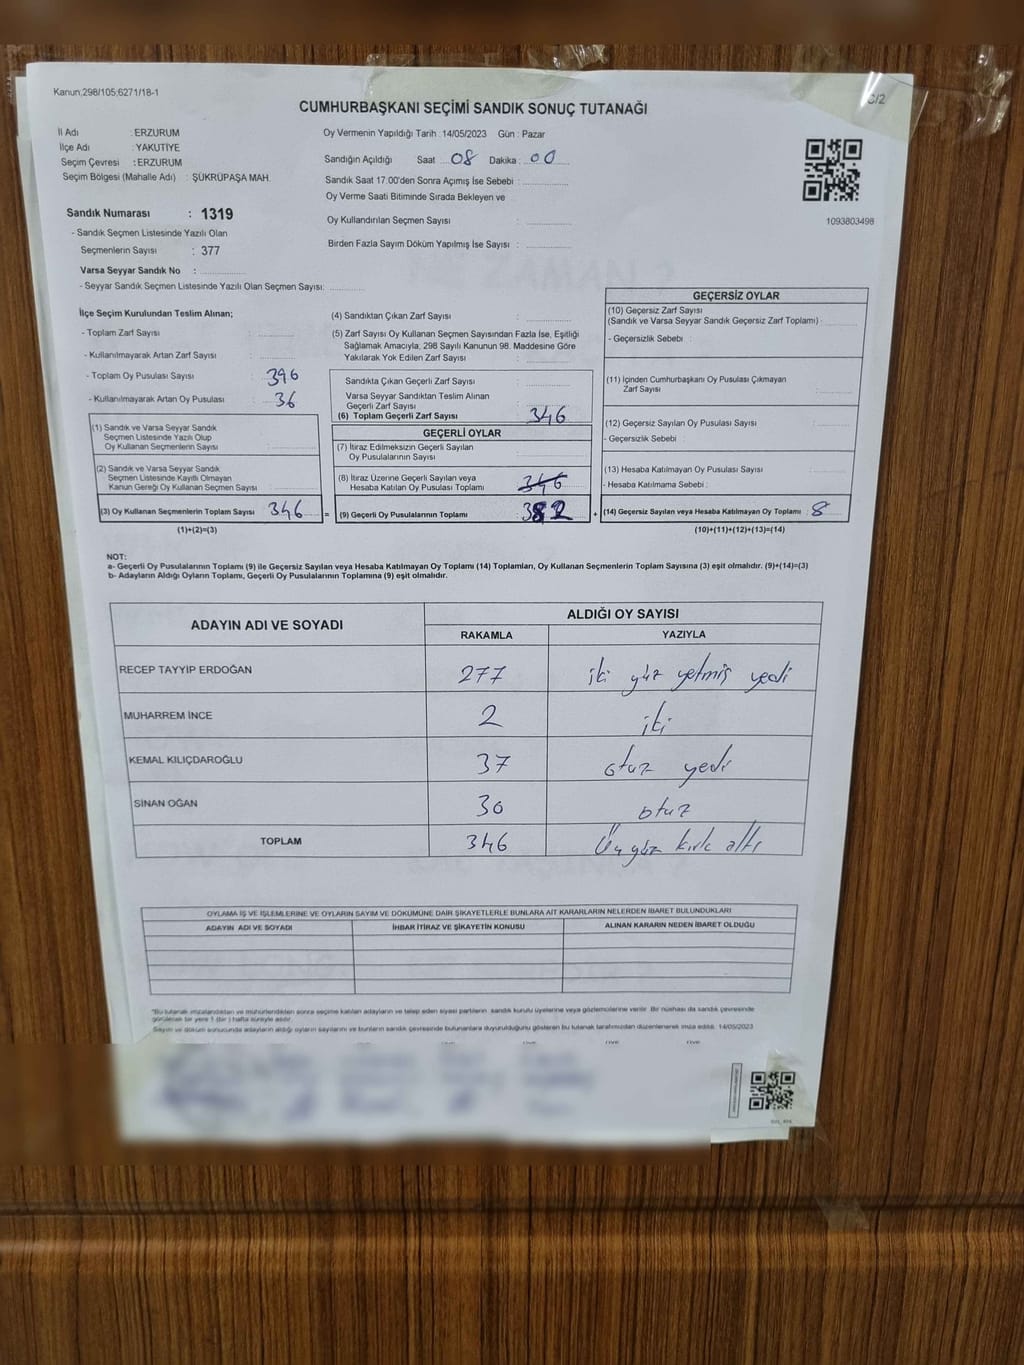 Kanun;298/105;6271/18-1
C/2
CUMHURBAŞKANI SEÇİMİ SANDIK SONUÇ TUTANAĞI
İl Adı : ERZURUM
İlçe Adı : YAKUTİYE
Seçim Çevresi : ERZURUM
Seçim Bölgesi (Mahalle Adı) : ŞÜKRÜPAŞA MAH.
Sandık Numarası : 1319
- Sandık Seçmen Listesinde Yazılı Olan
Seçmenlerin Sayısı : 377
Varsa Seyyar Sandık No :
- Seyyar Sandık Seçmen Listesinde Yazılı Olan Seçmen Sayısı:
Oy Vermenin Yapıldığı Tarih : 14/05/2023 Gün : Pazar
Sandığın Açıldığı Saat 08 Dakika : 00
Sandık Saat 17:00'den Sonra Açımış İse Sebebi :
Oy Verme Saati Bitiminde Sırada Bekleyen ve
Oy Kullandırılan Seçmen Sayısı :
Birden Fazla Sayım Döküm Yapılmış İse Sayısı :
1093803498
İlçe Seçim Kurulundan Teslim Alınan;
- Toplam Zarf Sayısı :
- Kullanılmayarak Artan Zarf Sayısı :
- Toplam Oy Pusulası Sayısı : 396
- Kullanılmayarak Artan Oy Pusulası : 36
(1) Sandık ve Varsa Seyyar Sandık
Seçmen Listesinde Yazılı Olup
Oy Kullanan Seçmenlerin Sayısı :
(2) Sandık ve Varsa Seyyar Sandık
Seçmen Listesinde Kayıtlı Olmayan
Kanun Gereği Oy Kullanan Seçmen Sayısı :
(3) Oy Kullanan Seçmenlerin Toplam Sayısı : 346 =
(1)+(2)=(3)
(4) Sandıktan Çıkan Zarf Sayısı :
(5) Zarf Sayısı Oy Kullanan Seçmen Sayısından Fazla İse, Eşitliği
Sağlamak Amacıyla, 298 Sayılı Kanunun 98. Maddesine Göre
Yakılarak Yok Edilen Zarf Sayısı :
Sandıkta Çıkan Geçerli Zarf Sayısı :
Varsa Seyyar Sandıktan Teslim Alınan
Geçerli Zarf Sayısı :
(6) Toplam Geçerli Zarf Sayısı : 346
GEÇERLİ OYLAR
(7) İtiraz Edilmeksizin Geçerli Sayılan
Oy Pusulalarının Sayısı :
(8) İtiraz Üzerine Geçerli Sayılan veya
Hesaba Katılan Oy Pusulası Toplamı : 346
(9) Geçerli Oy Pusulalarının Toplamı : 382 +
GEÇERSİZ OYLAR
(10) Geçersiz Zarf Sayısı
(Sandık ve Varsa Seyyar Sandık Geçersiz Zarf Toplamı) :
- Geçersizlik Sebebi :
(11) İçinden Cumhurbaşkanı Oy Pusulası Çıkmayan
Zarf Sayısı :
(12) Geçersiz Sayılan Oy Pusulası Sayısı :
- Geçersizlik Sebebi :
(13) Hesaba Katılmayan Oy Pusulası Sayısı :
- Hesaba Katılmama Sebebi :
(14) Geçersiz Sayılan veya Hesaba Katılmayan Oy Toplamı : 8
(10)+(11)+(12)+(13)=(14)
NOT:
a- Geçerli Oy Pusulalarının Toplamı (9) ile Geçersiz Sayılan veya Hesaba Katılmayan Oy Toplamı (14) Toplamları, Oy Kullanan Seçmenlerin Toplam Sayısına (3) eşit olmalıdır. (9)+(14)=(3)
b- Adayların Aldığı Oyların Toplamı, Geçerli Oy Pusulalarının Toplamına (9) eşit olmalıdır.
ADAYIN ADI VE SOYADI
ALDIĞI OY SAYISI
RAKAMLA YAZIYLA
RECEP TAYYIP ERDOĞAN 277 iki yüz yetmiş yedi
MUHARREM İNCE 2 iki
KEMAL KILIÇDAROĞLU 37 otuz yedi
SİNAN OĞAN 30 otuz
TOPLAM 346 Üç yüz kırk altı
OYLAMA İŞ VE İŞLEMLERİNE VE OYLARIN SAYIM VE DÖKÜMÜNE DAİR ŞİKAYETLERLE BUNLARA AİT KARARLARIN NELERDEN İBARET BULUNDUKLARI
ADAYIN ADI VE SOYADI İHBAR İTİRAZ VE ŞİKAYETİN KONUSU ALINAN KARARIN NEDEN İBARET OLDUĞU
*Bu tutanak imzalandıktan ve mühürlendikten sonra seçime katılan adayların ve talep eden siyasi partilerin sandık kurulu üyelerine veya gözlemcilerine verilir. Bir nüshası da sandık çevresinde
görülecek bir yere 1 (bir) hafta süreyle asılır.
Sayım ve döküm sonucunda adayların aldığı oyların sayılarını ve bunların sandık çevresinde bulunanlara duyurulduğunu gösteren bu tutanak tarafımızdan düzenlenerek imza edildi. 14/05/2023